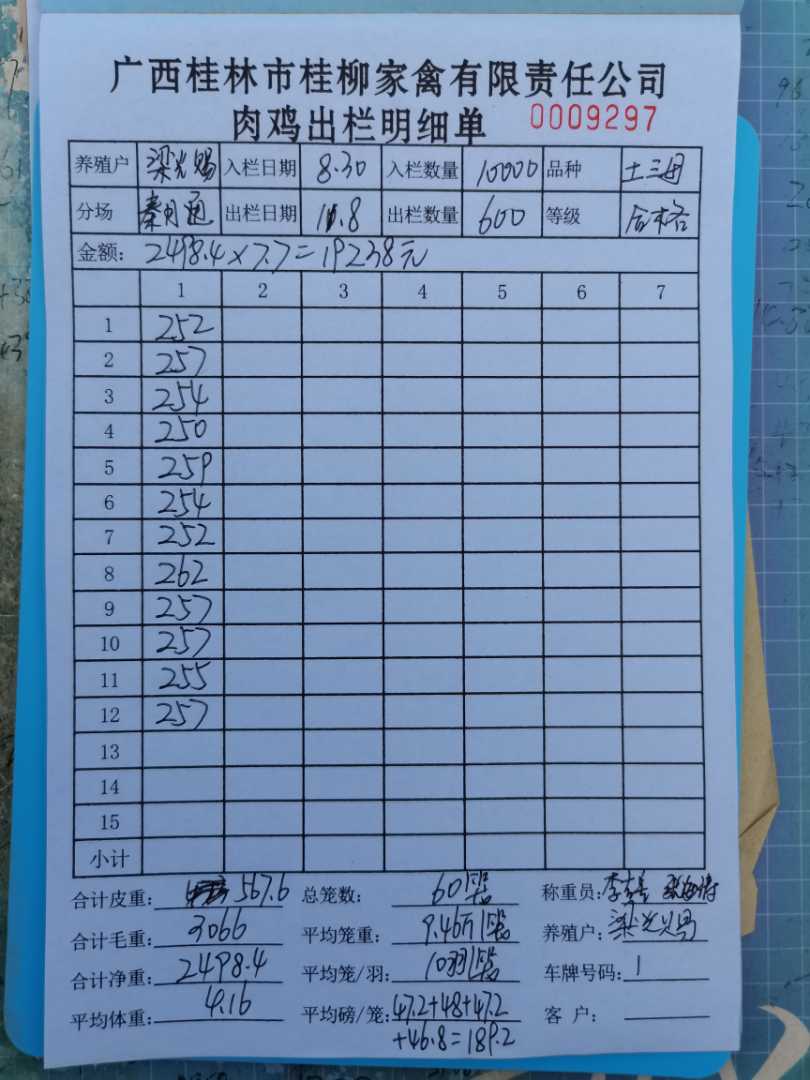 广西桂林市桂柳家禽有限责任公司
肉鸡出栏明细单 0009297
养殖户 梁光赐 入栏日期 8.30 入栏数量 10000 品种 土三
分场 秦 出栏日期 11.8 出栏数量 600 等级 合格
金额: 2498.4×7.7=19238元
1 2 3 4 5 6 7
1 252
2 257
3 254
4 250
5 259
6 254
7 252
8 262
9 257
10 257
11 255
12 257
13
14
15
小计
合计皮重: 567.6 总笼数: 60 称重员: 李
合计毛重: 3066 平均笼重: 9.46 养殖户: 梁光赐
合计净重: 2498.4 平均笼/羽: 10羽 车牌号码: 1
平均体重: 4.16 平均磅/笼: 47.2+48+47.2
+46.8=189.2 客 户: